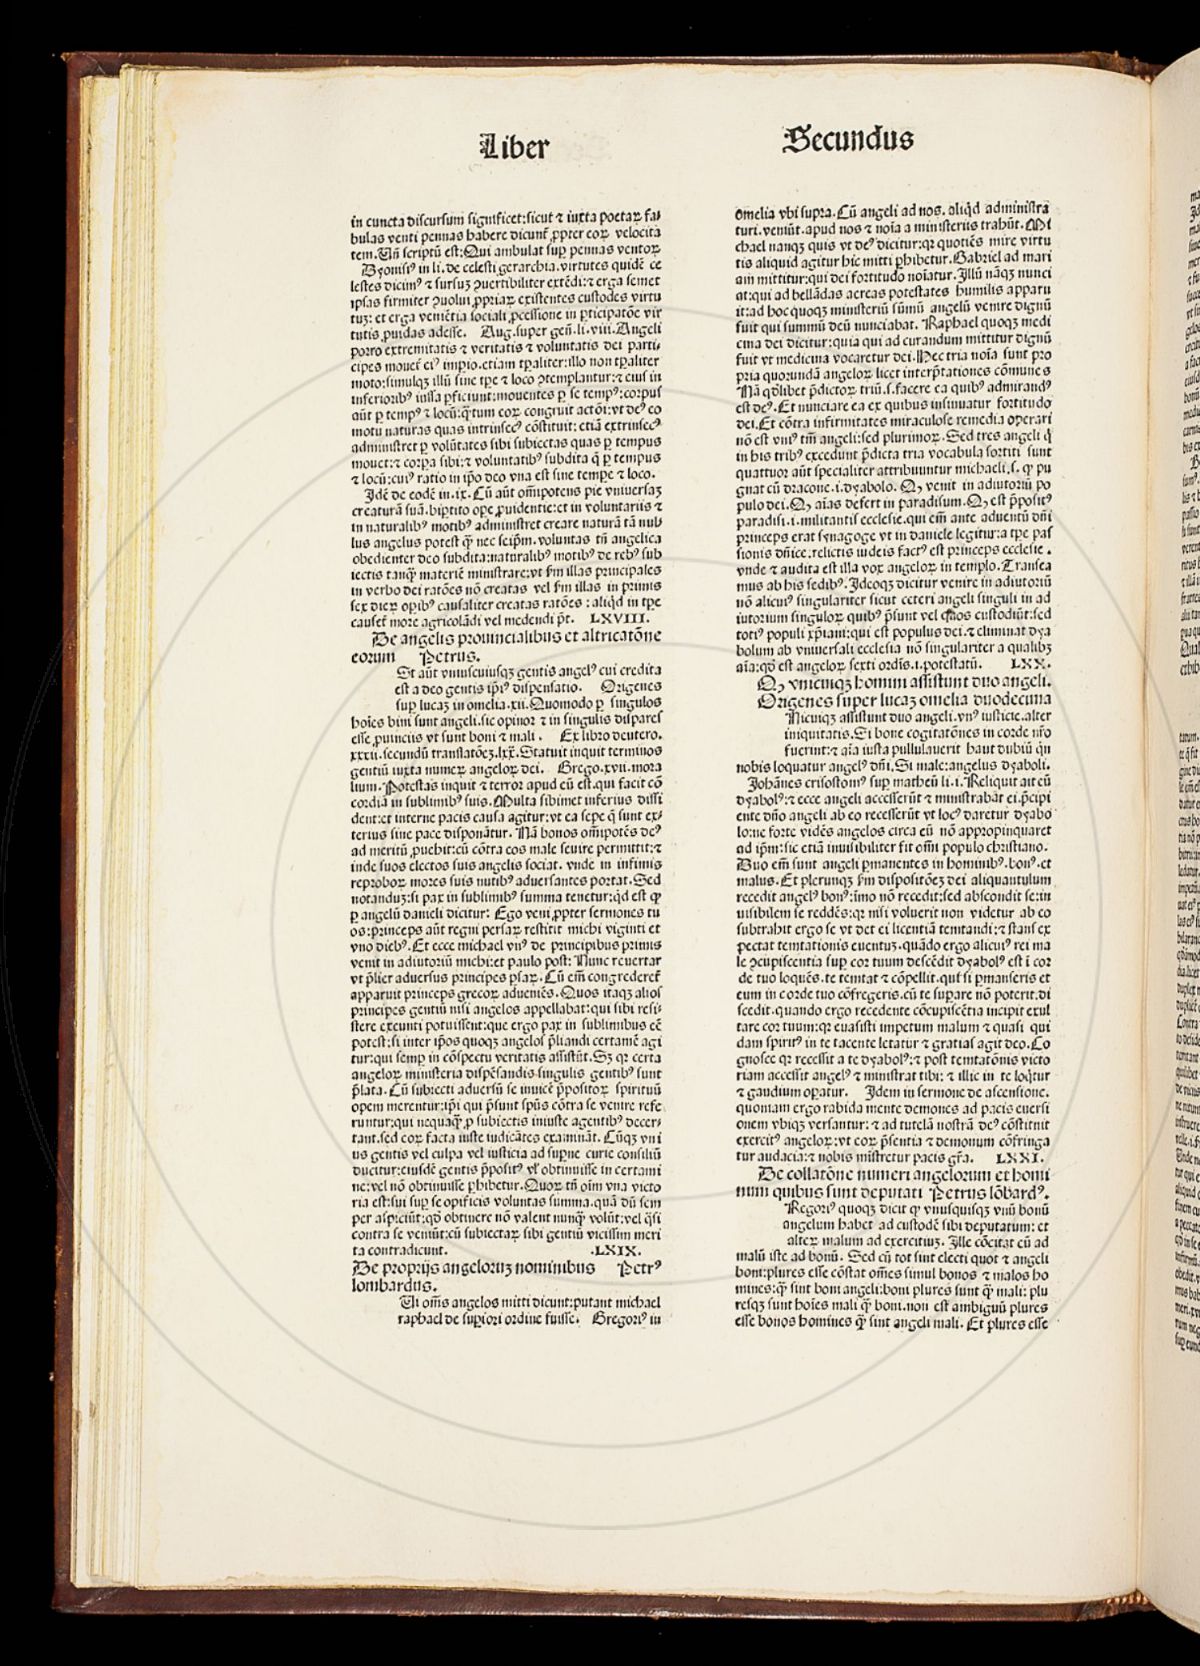 Liber
in cuncta discursum significet:sicut ⁊ iuxta poetaꝝ fa⸗
bulas venti pennas habere dicunt̃ ꝓpter eoꝝ velocita
tem.Vñ scriptũ est:Qui ambulat suꝑ pennas ventoꝝ
Dyonisiꝰ in li.de celesti gerarchia.virtutes quidẽ ce
lestes dicimꝰ ⁊ sursuꝫ ꝯuertibiliter extẽdi:⁊ erga semet
ipsas firmiter ꝯuolui ꝓpriaꝝ existentes custodes virtu
tuꝫ: et erga
tutis ꝓuidas adesse. Aug.super geñ.li.viii.Angeli
porro extremitatis ⁊ veritatis ⁊ voluntatis dei parti⸗
cipes mouet̃ eiꝰ impio.etiam tp̃aliter:illo non tp̃aliter
moto:simulqꝫ illũ sine tp̃e ⁊ loco ꝯtemplantur:⁊ eius in
inferioribꝰ iussa ꝑficiunt:mouentes ꝑ se tempꝰ:corpus
aũt ꝑ tempꝰ ⁊ locũ:q̃tum eoꝝ congruit actõi:vt deꝰ eo
motu naturas quas intrinsecꝰ cõstituit:etiã extrinsecꝰ
administret ꝑ volũtates sibi subiectas quas ꝑ tempus
mouet:⁊ corp̃a sibi:⁊ voluntatibꝰ subdita q̃ ꝑ tempus
⁊ locũ:cuiꝰ ratio in ip̃o deo vna est sine tempe ⁊ loco.
Idẽ de eodẽ in.ix.Cũ aũt om̃ipotens pie vniuersaꝫ
creaturã suã.biꝑtito oꝑe ꝓuidentie:et in voluntariis ⁊
in naturalibꝰ motibꝰ administret creare naturã tã nul⸗
lus angelus potest q̃ nec seip̃m.voluntas tñ angelica
obedienter deo subdita:naturalibꝰ motibꝰ de rebꝰ sub
iectis tanq̃ materiẽ ministrare:vt s̃m illas principales
in verbo dei ratões nõ creatas vel s̃m illas in primis
sex dieꝝ oꝑibꝰ causaliter creatas ratões : aliq̃d in tp̃e
causet̃ more agricolãdi vel medendi p̃t. LXVIII.
De angelis prouincialibus et altricatõne
eorum Petrus.
St aũt vniuscuiusqꝫ gentis angelꝰ cui credita
est a deo gentis ip̃iꝰ dispensatio. Origenes
suꝑ lucaꝫ in omelia.xii.Quomodo ꝑ singulos
hoĩes bini sunt angeli.sic opinor ⁊ in singulis dispares
esse ꝓuinciis vt sunt boni ⁊ mali . Ex libro deutero.
xxxii.secundũ translatõeꝫ.lxx̃.Statuit inquit terminos
gentiũ iuxta numeꝝ angeloꝝ dei. Grego.xvii.mora
lium.Potestas inquit ⁊ terror apud eũ est.qui facit cõ
cordiã in sublimibꝰ suis.Multa sibimet inferius dissi
dent:et interne pacis causa agitur:vt ea sepe q̃ sunt ex⸗
terius sine pace disponãtur. Nã bonos om̃ipotẽs deꝰ
ad meritũ ꝓuehit:cũ cõtra eos male seuire permittit:⁊
inde suos electos suis angelis sociat. vnde in infimis
reproboꝝ mores suis nutibꝰ aduersantes portat.Sed
notanduꝫ:si pax in sublimibꝰ summa tenetur:qd est ꝙ
ꝑ angelũ danieli dicitur: Ego veni ꝓpter sermones tu
os:princeps aũt regni persaꝝ restitit michi viginti et
vno diebꝰ.Et ecce michael vnꝰ de principibus primis
venit in adiutoriũ michi:et paulo post: Nunc reuertar
vt p̃lier aduersus principes ꝑsaꝝ.Cũ em̃ congrederet̃
apparuit princeps grecoꝝ adueniẽs.Quos itaqꝫ alios
principes gentiũ nisi angelos appellabat:qui sibi resi⸗
stere exeunti potuissent:que ergo pax in sublimibus eẽ
potest:si inter ip̃os quoqꝫ angelos p̃liandi certamẽ agi
tur:qui semꝑ in cõspectu veritatis assistũt.Sꝫ qꝛ certa
angeloꝝ ministeria dispẽsandis singulis gentibꝰ sunt
p̃lata.Cũ subiecti aduersũ se inuicẽ p̃positoꝝ spirituũ
opem merentur:ip̃i qui p̃sunt sp̃us cõtra se venire refe
runtur:qui nequaq̃ ꝓ subiectis iniuste agentibꝰ decer⸗
tant.sed eoꝝ facta iuste iudicãtes examinãt. Cũqꝫ vni
us gentis vel culpa vel iusticia ad suꝑne curie consiliũ
ducitur:eiusdẽ gentis p̃positꝰ vl̃ obtinuisse in certami
ne:vel nõ obtinuisse ꝑhibetur.Quoꝝ tñ oĩm vna victo
ria est:sui suꝑ se opificis voluntas summa.quã dũ sem
per aspiciũt:qd̃ obtinere nõ valent nunq̃ volũt:vel q̃si
contra se veniũt:cũ subiectaꝝ sibi gentiũ vicissim meri
ta contradicunt. .LXIX.
De proprijs angeloruꝫ nominibus Petrꝰ
lombardus.
Ui om̃s angelos mitti dicunt:putant michael
raphael de suꝑiori ordine fuisse. Gregoriꝰ in
Secundus
omelia vbi supra.Cũ angeli ad nos. aliq̃d administra
turi.veniũt.apud nos ⁊ noĩa a ministeriis trahũt.Mi
chael nanqꝫ quis vt deꝰ dicitur:qꝛ quotiẽs mire virtu
tis aliquid agitur hic mitti ꝑhibetur.Gabriel ad mari
am mittitur:qui dei fortitudo noĩatur.Illũ nãqꝫ nunci
at:qui ad bellãdas aereas potestates humilis apparu
it:ad hoc quoqꝫ ministeriũ sũmũ angelũ venire dignũ
fuit qui summũ deũ nunciabat. Raphael quoqꝫ medi
cina dei dicitur:quia qui ad curandum mittitur dignũ
fuit vt medicina vocaretur dei.Nec tria noĩa sunt pro
pria quorundã angeloꝝ licet interp̃tationes cõmunes
Nã q̃dlibet p̃dictoꝝ triũ.s.facere ea quibꝰ admirandꝰ
est deꝰ.Et nunciare ea ex quibus insinuatur fortitudo
dei.Et cõtra infirmitates miraculose remedia operari
nõ est vniꝰ tm̃ angeli:sed plurimoꝝ.Sed tres angeli q̃
in his tribꝰ excedunt p̃dicta tria vocabula sortiti sunt
quattuoꝛ aũt specialiter attribuuntur michaeli.s. ꝙ pu
gnat cũ dracone.i.dyabolo.Qꝫ venit in adiutoriũ po
pulo dei.Qꝫ aĩas defert in paradisum.Qꝫ est p̃positꝰ
paradisi.i.militantis ecclesie.qui em̃ ante aduentũ dñi
princeps erat synagoge vt in daniele legitur:a tp̃e pas
sionis dñice.relictis iudeis factꝰ est princeps ecclesie .
vnde ⁊ audita est illa vox angeloꝝ in templo.Transea
mus ab his sedibꝰ.Ideoqꝫ dicitur venire in adiutoriũ
nõ alicuiꝰ singulariter sicut ceteri angeli singuli in ad
iutorium singuloꝝ quibꝰ p̃sunt vel quos custodiũt:sed
totiꝰ populi xp̃iani:qui est populus dei.⁊ eliminat dya
bolum ab vniuersali ecclesia nõ singulariter a qualibꝫ
aĩa:qd̃ est angeloꝝ sexti ordĩs.i.potestatũ. LXX.
Qꝫ vnicuiqꝫ homini assistunt duo angeli.
Origenes super lucaꝫ omelia duodecima
Nicuiqꝫ assistunt duo angeli.vnꝰ iusticie.alter
iniquitatis.Si bone cogitatõnes in corde nr̃o
fuerint:⁊ aĩa iusta pullulauerit haut dubiũ q̃n
nobis loquatur angelꝰ dñi.Si male:angelus dyaboli.
Johãnes crisostomꝰ suꝑ matheũ li.i.Reliquit ait eũ
dyabolꝰ:⁊ ecce angeli accesserũt ⁊ ministrabãt ei.p̃cipi
ente dño angeli ab eo recesserũt vt locꝰ daretur dyabo
lo:ne forte vidẽs angelos circa eũ nõ appropinquaret
ad ip̃m:sic etiã inuisibiliter fit om̃i populo christiano.
Duo em̃ sunt angeli ꝑmanentes in hominibꝰ.bonꝰ.et
malus.Et plerunqꝫ s̃m dispositõeꝫ dei aliquantulum
recedit angelꝰ bonꝰ:ĩmo nõ recedit:sed abscondit se:in
uisibilem se reddẽs:qꝛ nisi voluerit non videtur ab eo
subtrahit ergo se vt det ei licentiã temtandi:⁊ stans ex
pectat temtationis euentuꝫ.quãdo ergo alicuiꝰ rei ma
le ꝯcupiscentia suꝑ cor tuum descẽdit dyabolꝰ est ĩ cor
de tuo loquẽs.te temtat ⁊ cõpellit.qui si ꝑmanseris et
eum in corde tuo cõfregeris.cũ te suꝑare nõ poterit.di
scedit.quando ergo recedente cõcupiscẽtia incipit exul
tare cor tuum:qꝛ euasisti impetum malum ⁊ quasi qui
dam spiritꝰ in te tacente letatur ⁊ gratias agit deo.Co
gnosce qꝛ recessit a te dyabolꝰ:⁊ post temtatõnis victo
riam accessit angelꝰ ⁊ ministrat tibi: ⁊ illic in te loq̃tur
⁊ gaudium oꝑatur. Idem in sermone de ascensione.
quoniam ergo rabida mente demones ad pacis euersi
onem vbiqꝫ versantur: ⁊ ad tutelã nostrã deꝰ cõstituit
exercitꝰ angeloꝝ:vt eoꝝ p̃sentia ⁊ demonum cõfringa
tur audacia:⁊ nobis mĩstretur pacis gr̃a. LXXI.
De collatõne numeri angelorum et homi
num quibus sunt deputati Petrus lõbardꝰ.
Regoriꝰ quoqꝫ dicit ꝙ vnusquisqꝫ vnũ bonũ
angelum habet ad custodẽ sibi deputatum: et
alteꝝ malum ad exercitiuꝫ. Ille cõcitat eũ ad
malũ iste ad bonũ. Sed cũ tot sint electi quot ⁊ angeli
boni:plures esse cõstat om̃es simul bonos ⁊ malos ho
mines:q̃ sint boni angeli:boni plures sunt q̃ mali: plu
resqꝫ sunt hoĩes mali q̃ boni.non est ambiguũ plures
esse bonos homines q̃ sint angeli mali. Et plures esse